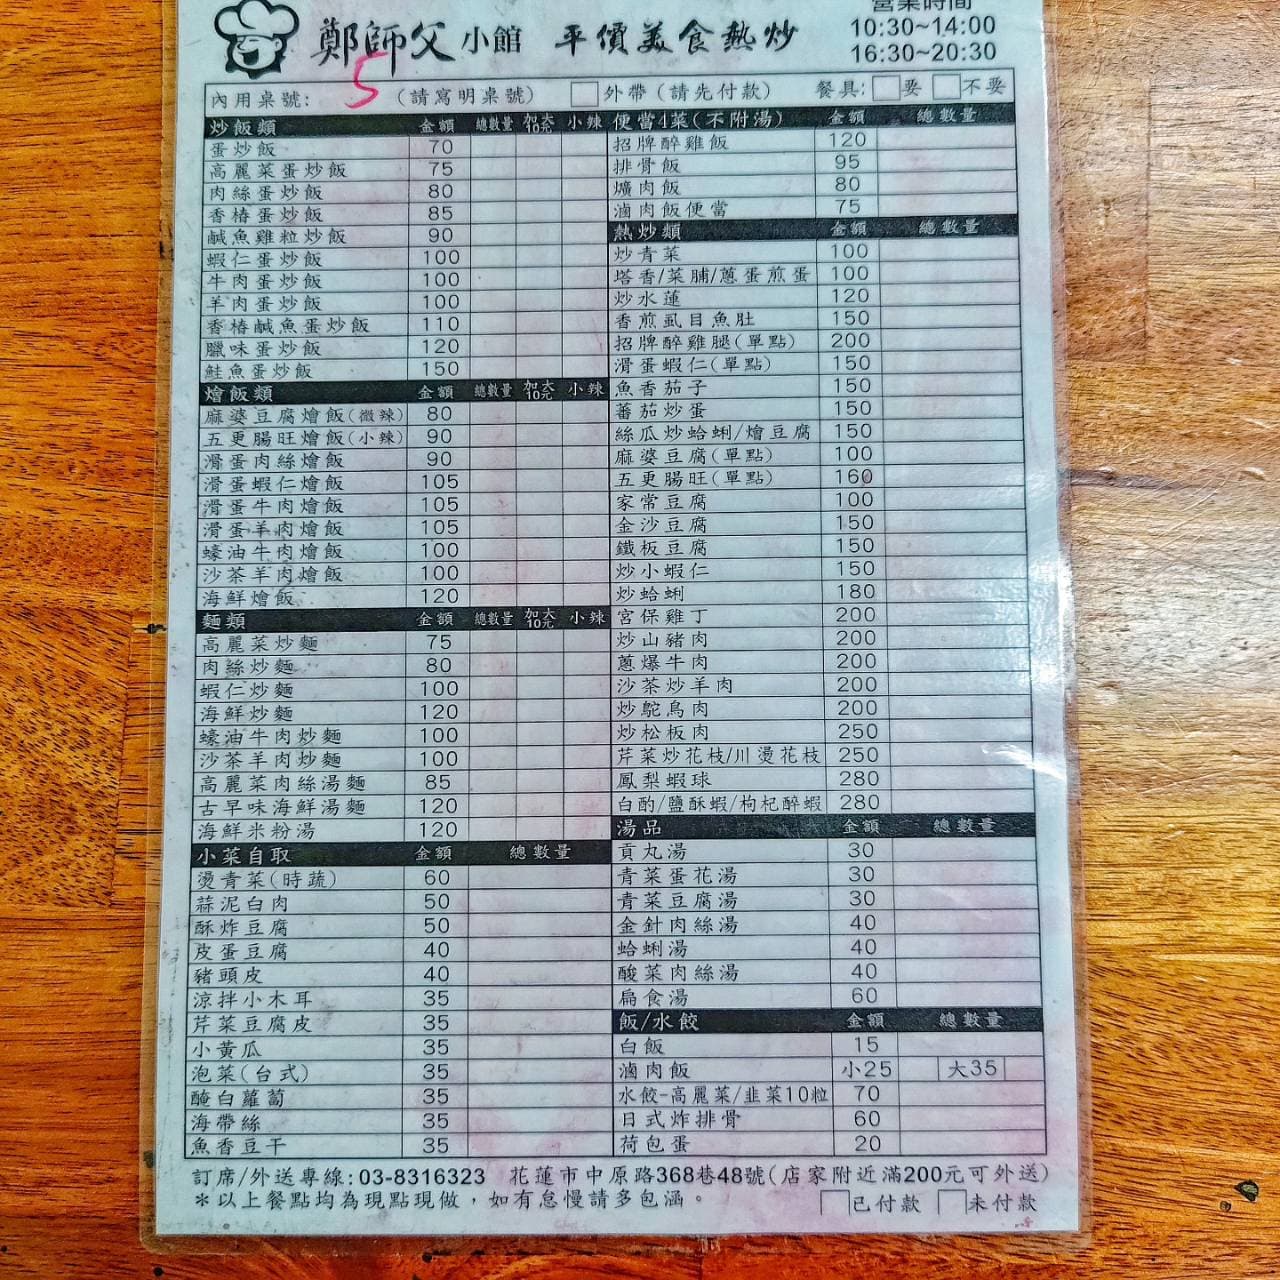 鄭師父 小館 平價美食熱炒
營業時間
10:30~14:00
16:30~20:30
內用桌號: 5 (請寫明桌號) 外帶(請先付款) 餐具: 要 不要
炒飯類 金額 總數量 加大10元 小辣
蛋炒飯 70
高麗菜蛋炒飯 75
肉絲蛋炒飯 80
香椿蛋炒飯 85
鹹魚雞粒炒飯 90
蝦仁蛋炒飯 100
牛肉蛋炒飯 100
羊肉蛋炒飯 100
香椿鹹魚蛋炒飯 110
臘味蛋炒飯 120
鮭魚蛋炒飯 150
燴飯類 金額 總數量 加大10元 小辣
麻婆豆腐燴飯(微辣) 80
五更腸旺燴飯(小辣) 90
滑蛋肉絲燴飯 90
滑蛋蝦仁燴飯 105
滑蛋牛肉燴飯 105
滑蛋羊肉燴飯 105
蠔油牛肉燴飯 100
沙茶羊肉燴飯 100
海鮮燴飯 120
麵類 金額 總數量 加大10元 小辣
高麗菜炒麵 75
肉絲炒麵 80
蝦仁炒麵 100
海鮮炒麵 120
蠔油牛肉炒麵 100
沙茶羊肉炒麵 100
高麗菜肉絲湯麵 85
古早味海鮮湯麵 120
海鮮米粉湯 120
小菜自取 金額 總數量
燙青菜(時蔬) 60
蒜泥白肉 50
酥炸豆腐 50
皮蛋豆腐 40
豬頭皮 40
涼拌小木耳 35
芹菜豆腐皮 35
小黃瓜 35
泡菜(台式) 35
醃白蘿蔔 35
海帶絲 35
魚香豆干 35
便當4菜(不附湯) 金額 總數量
招牌醉雞飯 120
排骨飯 95
爌肉飯 80
滷肉飯便當 75
熱炒類 金額 總數量
炒青菜 100
塔香/菜脯/蔥蛋煎蛋 100
炒水蓮 120
香煎虱目魚肚 150
招牌醉雞腿(單點) 200
滑蛋蝦仁(單點) 150
魚香茄子 150
蕃茄炒蛋 150
絲瓜炒蛤蜊/燴豆腐 150
麻婆豆腐(單點) 100
五更腸旺(單點) 160
家常豆腐 100
金沙豆腐 150
鐵板豆腐 150
炒小蝦仁 150
炒蛤蜊 180
宮保雞丁 200
炒山豬肉 200
蔥爆牛肉 200
沙茶炒羊肉 200
炒鴕鳥肉 200
炒松板肉 250
芹菜炒花枝/川燙花枝 250
鳳梨蝦球 280
白酌/鹽酥蝦/枸杞醉蝦 280
湯品 金額 總數量
貢丸湯 30
青菜蛋花湯 30
青菜豆腐湯 30
金針肉絲湯 40
蛤蜊湯 40
酸菜肉絲湯 40
扁食湯 60
飯/水餃 金額 總數量
白飯 15
滷肉飯 小25 大35
水餃-高麗菜/韭菜10粒 70
日式炸排骨 60
荷包蛋 20
訂席/外送專線:03-8316323 花蓮市中原路368巷48號(店家附近滿200元可外送)
*以上餐點均為現點現做,如有怠慢請多包涵。 已付款 未付款